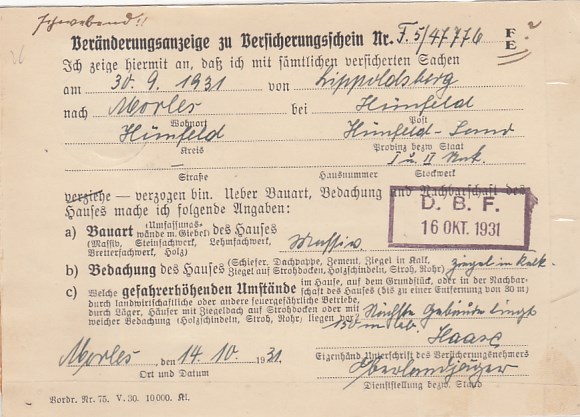 schwebend!!
Veränderungsanzeige zu Versicherungsschein Nr. F. 5/47776 F E ?
Ich zeige hiermit an, daß ich mit sämtlichen versicherten Sachen
am 30. 9. 1931 von Lippoldsberg
nach Morles bei Hünfeld
Wohnort Post
Hünfeld Hünfeld-Land
Kreis Provinz bezw. Staat
— I u. II Stck.
Straße Hausnummer Stockwerk
verziehe — verzogen bin. Ueber Bauart, Bedachung und Nachbarschaft des
Hauses mache ich folgende Angaben:
D. B. F.
16 OKT. 1931
a) Bauart (Umfassungswände m. Giebel) des Hauses
(Massiv, Steinfachwerk, Lehmfachwerk, Bretterfachwerk, Holz) Massiv.
b) Bedachung des Hauses (Schiefer, Dachpappe, Zement, Ziegel in Kalk, Ziegel auf Strohdocken, Holzschindeln, Stroh, Rohr) Ziegel in Kalk.
c) Welche gefahrerhöhenden Umstände im Hause, auf dem Grundstück, oder in der Nachbarschaft des Hauses (bis zu einer Entfernung von 30 m)
durch landwirtschaftliche oder andere feuergefährliche Betriebe,
durch Läger, Häuser mit Ziegeldach auf Strohdocken oder mit
weicher Bedachung (Holzschindeln, Stroh, Rohr) liegen vor? Nächste Gebäude liegt
150 m ab.
Haase
Morles, den 14. 10. 1931 Eigenhänd. Unterschrift des Versicherungsnehmers
Ort und Datum Oberlandjäger
Dienststellung bezw. Stand
Vordr. Nr. 75. V. 30. 10000. Kl.